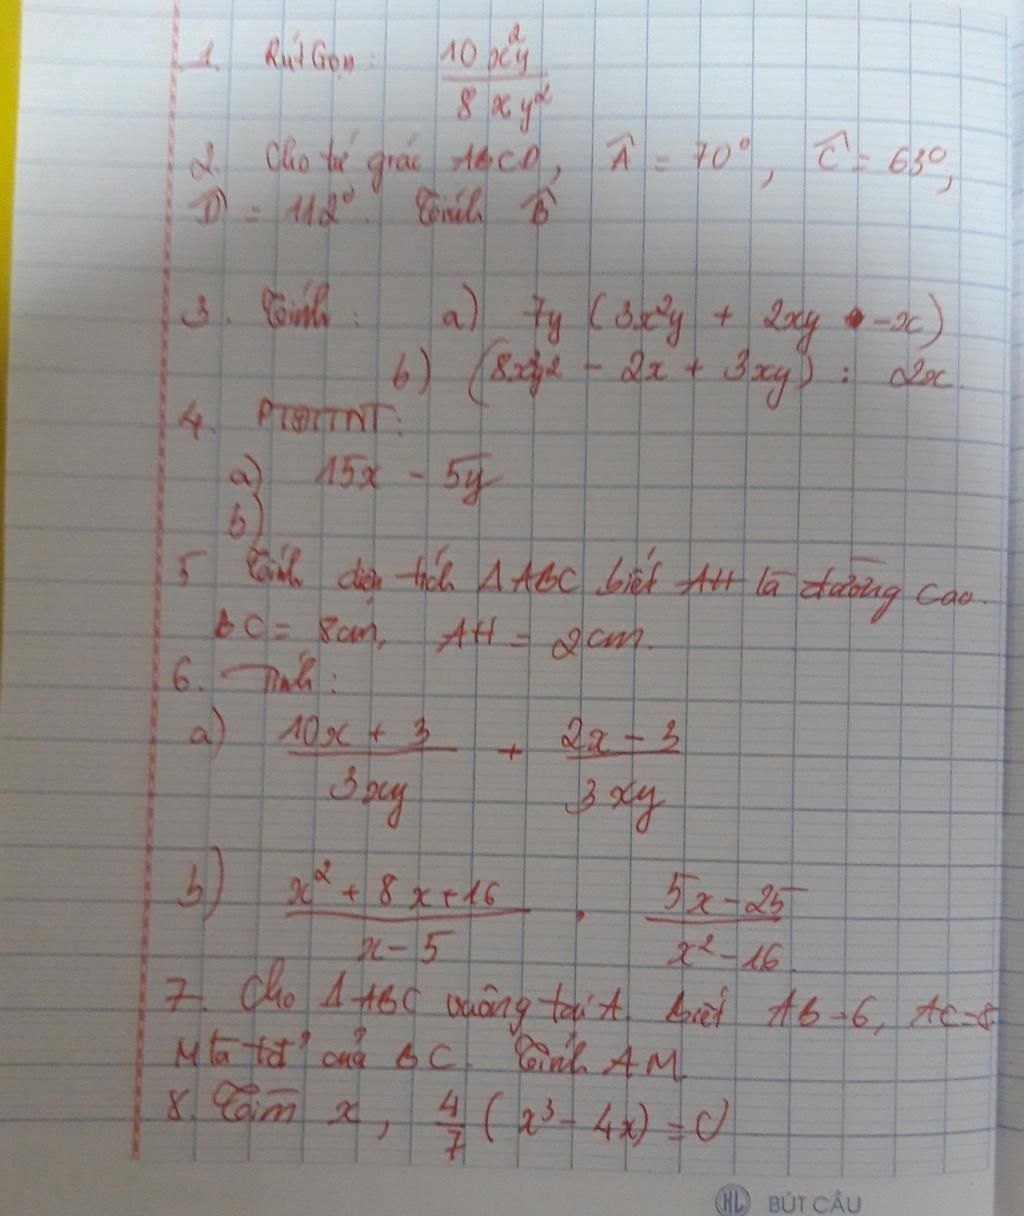 1. Rút Gọn: 10x²y / 8xy²
2. Cho tứ giác ABCD, Â = 70°, Ĉ = 63°,
D̂ = 112°. Tính B̂
3. Tính: a) 7y (3x²y + 2xy - x)
b) (8xy² - 2x + 3xy) : 2x
4. PTĐTTNT:
a) 15x - 5y
b)
5 Tính diện tích ΔABC biết AH là đường cao.
BC = 8cm, AH = 2cm.
6. Tính:
a) (10x + 3) / 3xy + (2x - 3) / 3xy
b) (x² + 8x + 16) / (x - 5) . (5x - 25) / (x² - 16)
7. Cho ΔABC vuông tại A biết AB = 6, AC = 8
M là tđ của BC. Tính AM
8. Tìm x, 4/7 (x³ - 4x) = 0
HL BÚT CẦU